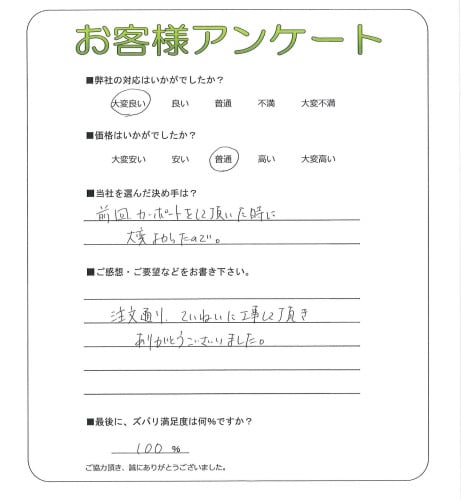 お客様アンケート
■弊社の対応はいかがでしたか？
大変良い 良い 普通 不満 大変不満
■価格はいかがでしたか？
大変安い 安い 普通 高い 大変高い
■当社を選んだ決め手は？
前回カーポートをして頂いた時に
大変よかったので。
■ご感想・ご要望などをお書き下さい。
注文通り、ていねいに工事して頂き
ありがとうございました。
■最後に、ズバリ満足度は何%ですか？
100 %
ご協力頂き、誠にありがとうございました。